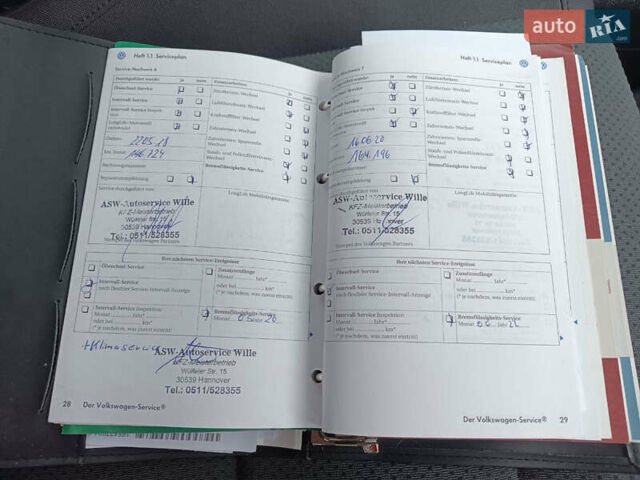 auto RIA .com
Heft 1.1 Serviceplan
Service-Nachweis 6
Durchgeführt wurde: ja nein
Zusatzarbeiten: ja nein
Ölwechsel-Service
Intervall-Service
Intervall-Service Inspektion
LongLife-Motoröl verwendet
Datum:
22 05 18
km-Stand: 146 724
Rechnungsnummer:
Reparaturempfehlung
Staubfilter-Wechsel
Luftfiltereinsatz-Wechsel
Kraftstofffilter-Wechsel
Zahnriemen-Wechsel
Zahnriemen-Spannrolle-Wechsel
Staub- und Pollenfiltereinsatz-Wechsel
Bremsflüssigkeits-Service
Service durchgeführt von:
LongLife Mobilitätsgarantie
ASW-Autoservice Wille
KFZ-Meisterbetrieb
Wülfeler Str. 15
30539 Hannover
Tel.: 0511/528355
Stempel des Volkswagen Partners
Ihre nächsten Service-Ereignisse
Ölwechsel-Service
Intervall-Service
nach flexibler Service-Intervall-Anzeige
Zusatzumfänge
Monat Jahr*
oder bei km*
(* je nachdem, was zuerst eintritt)
Intervall-Service Inspektion
Monat Jahr*
oder bei km*
(* je nachdem, was zuerst eintritt)
Bremsflüssigkeits-Service
Monat 05 Jahr 20
+Klimaservice
ASW-Autoservice Wille
KFZ-Meisterbetrieb
Wülfeler Str. 15
30539 Hannover
Tel.: 0511/528355
28 Der Volkswagen-Service®
Heft 1.1 Serviceplan
Nachweis 7
wurde: ja nein
Zusatzarbeiten: ja nein
16 06 20
164 196
Staubfilter-Wechsel
Luftfiltereinsatz-Wechsel
Kraftstofffilter-Wechsel
Zahnriemen-Wechsel
Zahnriemen-Spannrolle-Wechsel
Staub- und Pollenfiltereinsatz-Wechsel
Bremsflüssigkeits-Service
LongLife Mobilitätsgarantie
ASW-Autoservice Wille
KFZ-Meisterbetrieb
Wülfeler Str. 15
30539 Hannover
Tel.: 0511/528355
Stempel des Volkswagen Partners
Ihre nächsten Service-Ereignisse
Ölwechsel-Service
Intervall-Service
nach flexibler Service-Intervall-Anzeige
Zusatzumfänge
Monat Jahr*
oder bei km*
(* je nachdem, was zuerst eintritt)
Intervall-Service Inspektion
Monat Jahr*
oder bei km*
(* je nachdem, was zuerst eintritt)
Bremsflüssigkeits-Service
Monat 06 Jahr 22
Der Volkswagen-Service® 29